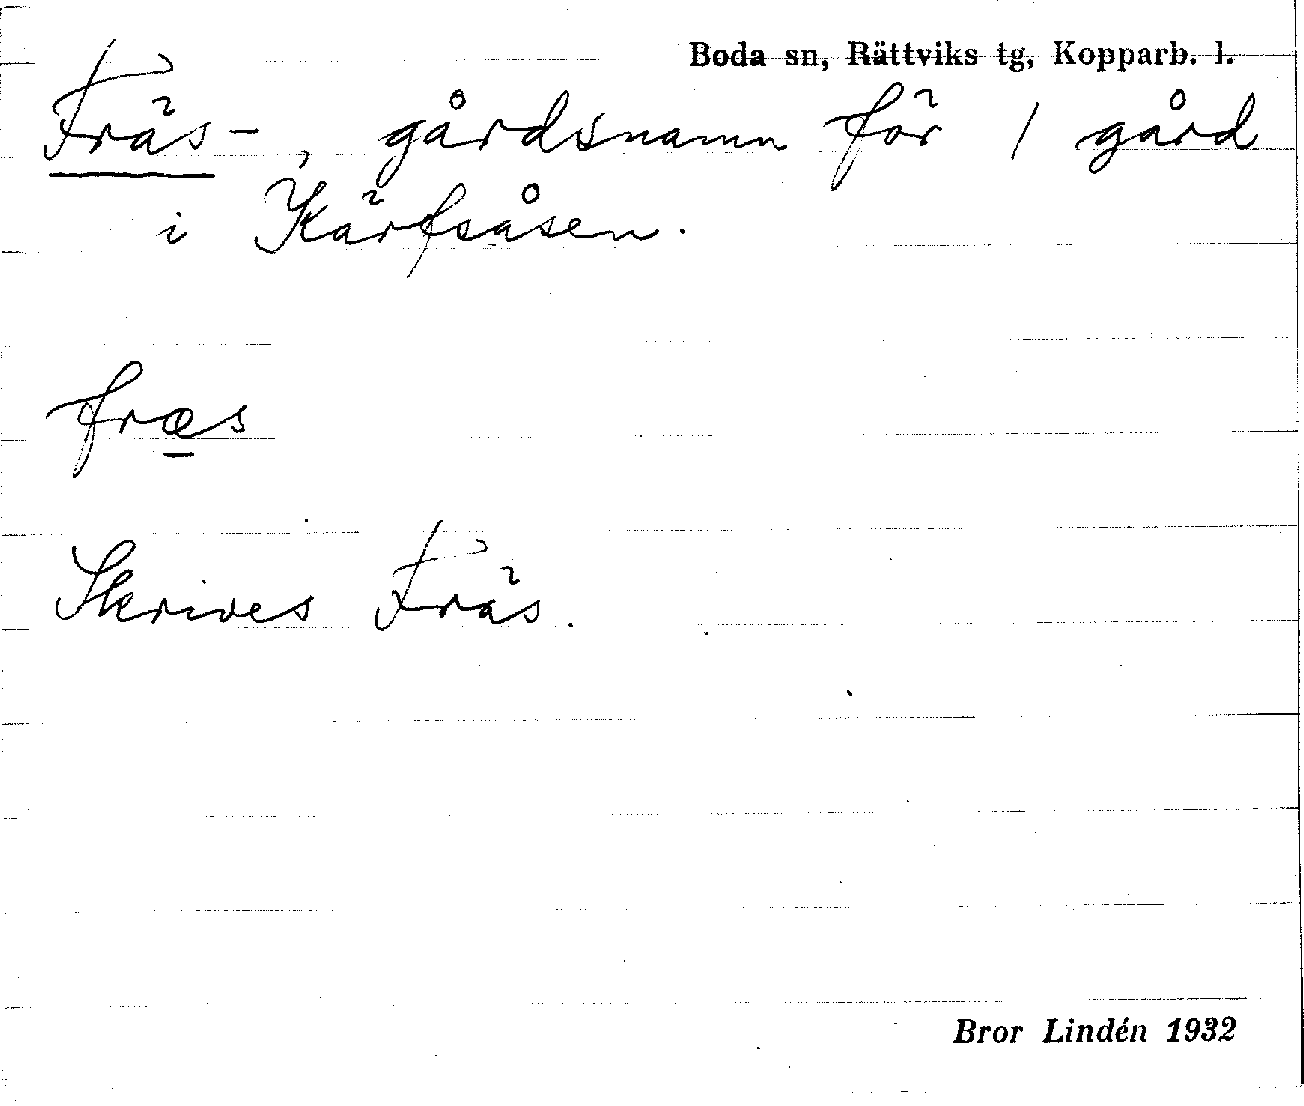 Boda sn, Rättviks tg, Kopparb. l.
Fräs-, gårdsnamn för 1 gård
i Kärfsåsen.
fræs
Skrives Fräs.
Bror Lindén 1932